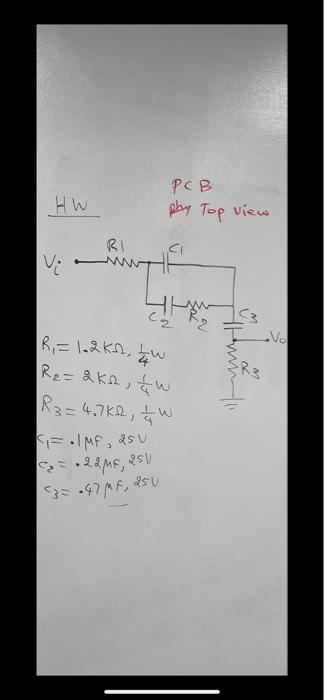 PCB
HW
Top View
R1
C1
Vi
C2
R2
C3
Vo
R3
R1 = 1.2KΩ, 1/4 W
R2 = 2KΩ, 1/4 W
R3 = 4.7KΩ, 1/4 W
C1 = .1μF, 25V
C2 = .22μF, 25V
C3 = .47μF, 25V